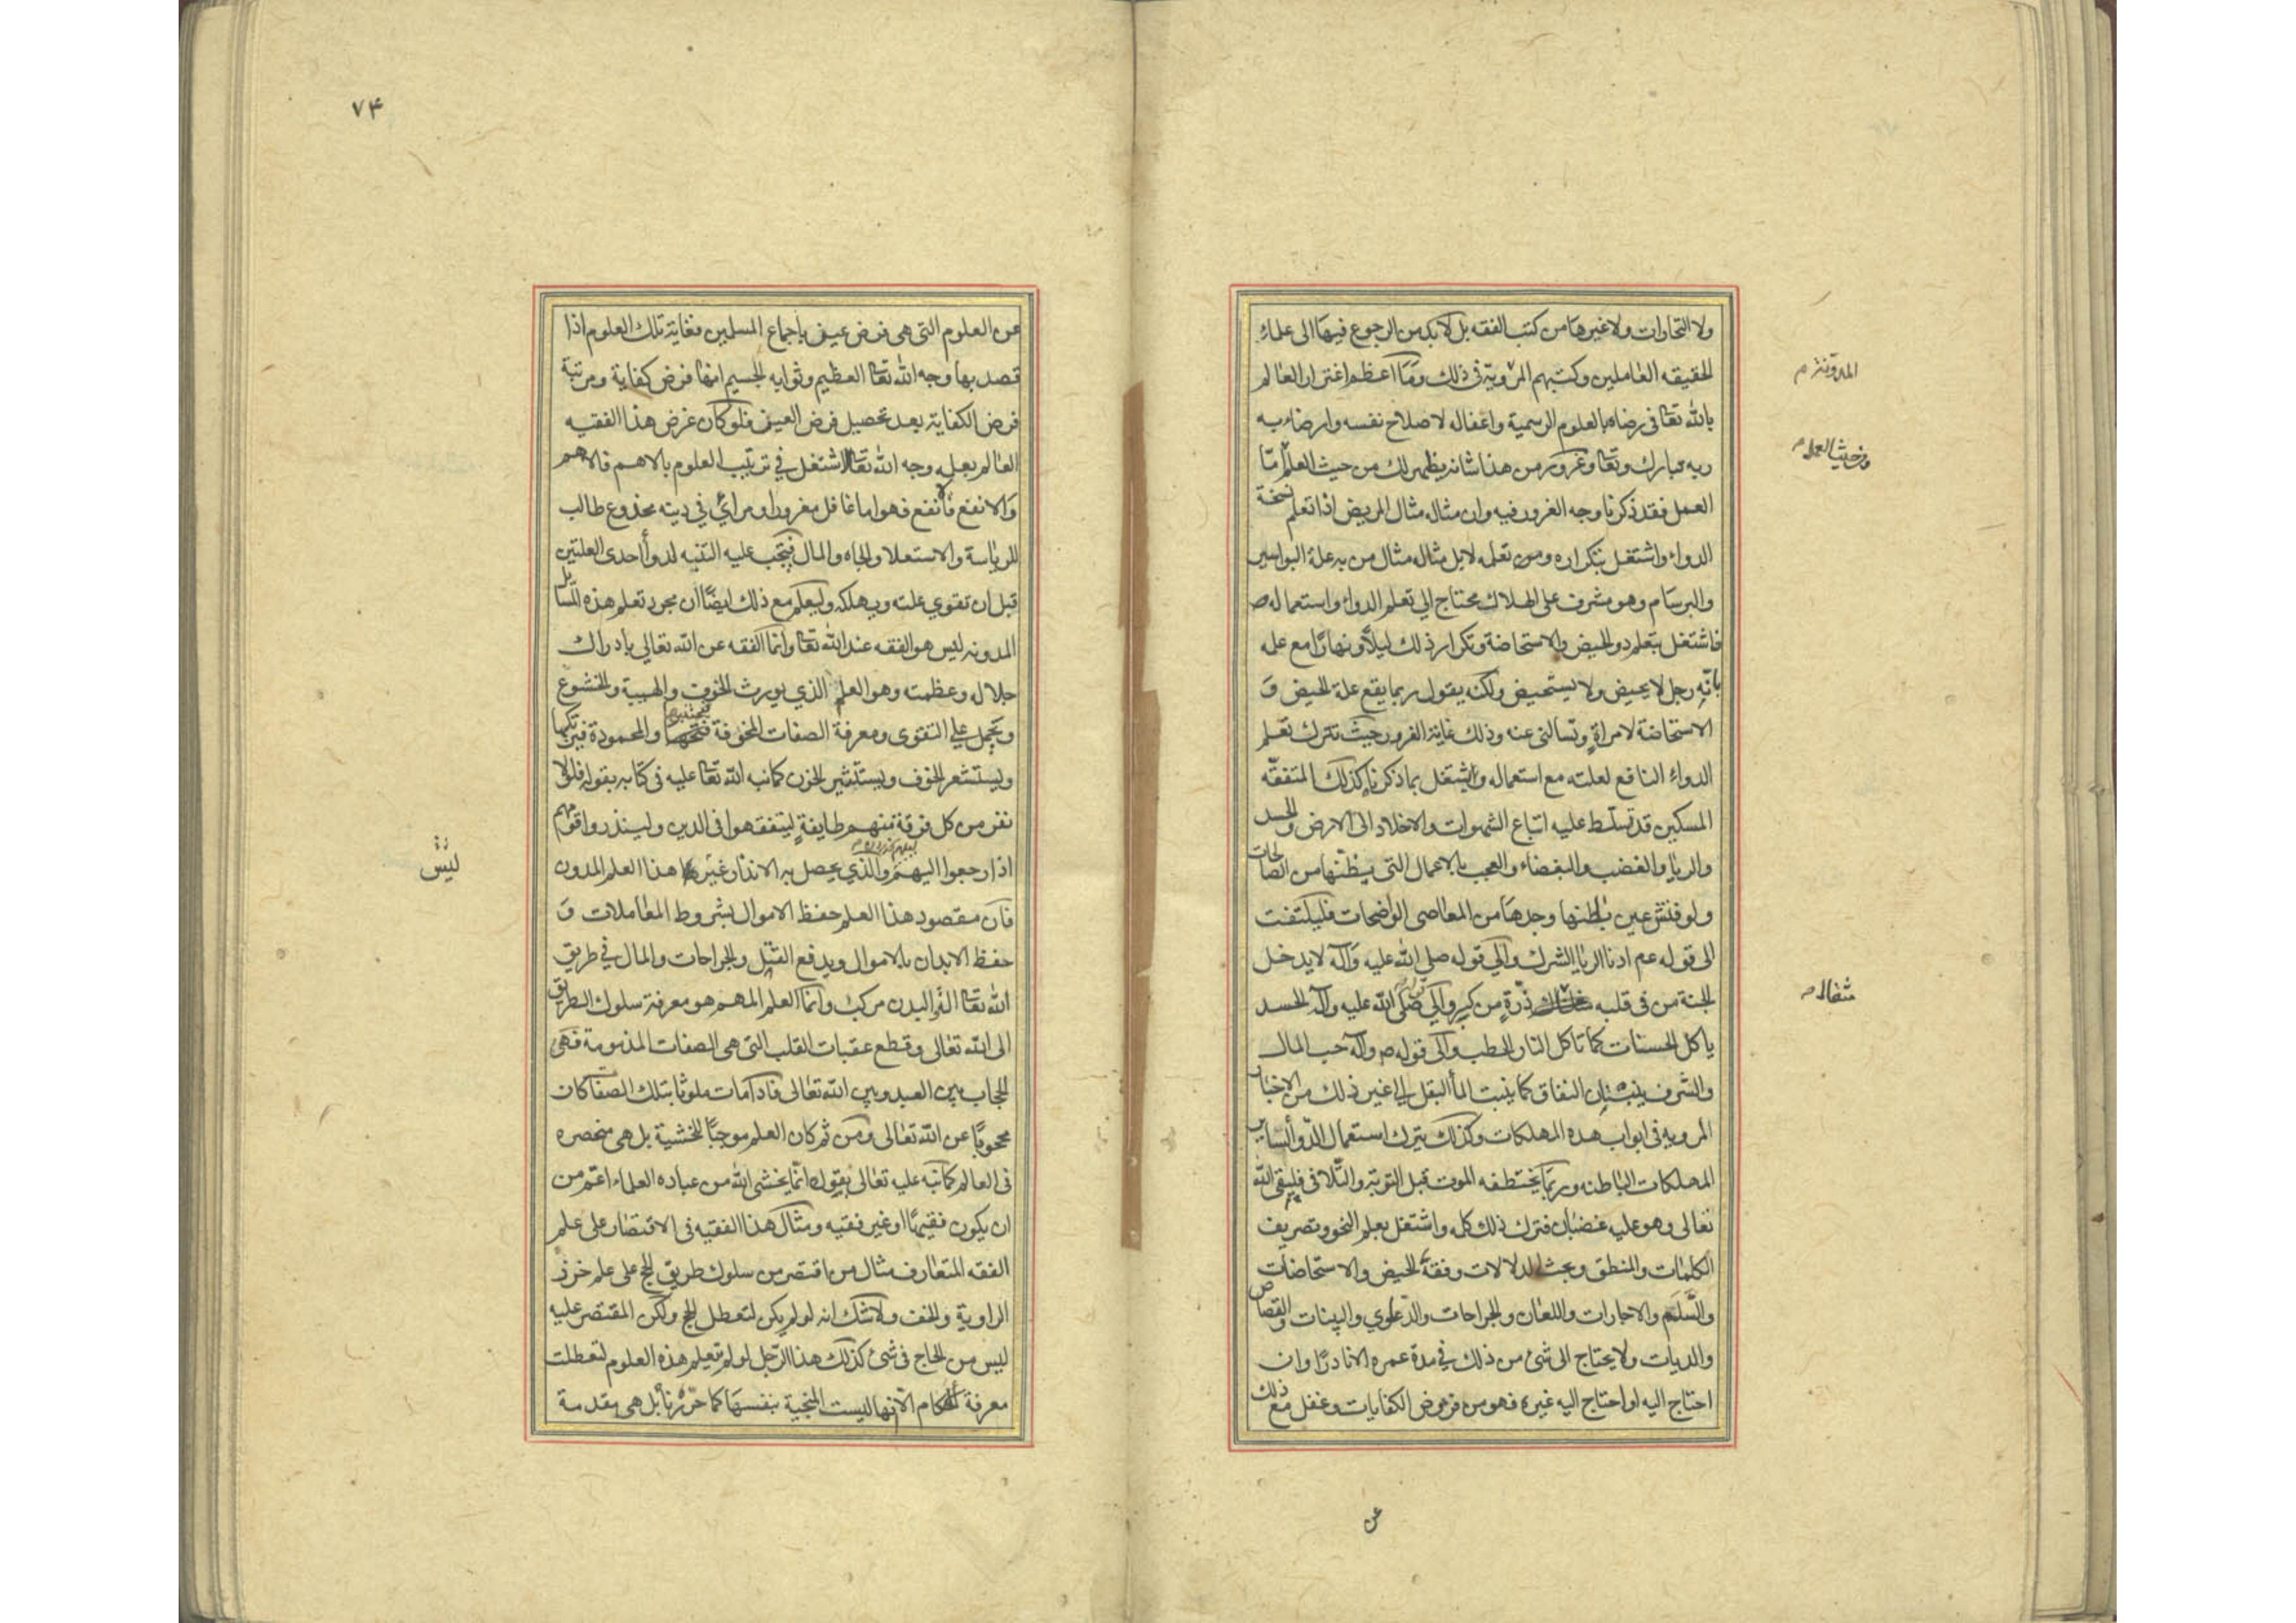 ولا التجارات ولا غيرها من كتب الفقه بل لابد من الرجوع فيها الى علماء
الحقيقه العاملين وكتبهم المروية في ذلك وما اعظم اغترار العالم
بالله تعا في رضاه بالعلوم الرسمية واغفاله لاصلاح نفسه وارضاء به
ربه تبارك وتعا وغرور من هذا شانه يظهر لك من حيث العلم امّا
العمل فقد ذكرنا وجه الغرور فيه وان مثاله مثال المريض اذا تعلم نسخة
الدواء واشتغل بتكراره ومن تعلمه لا بل مثاله مثال من به علة البواسير
والبرسام وهو مشرف على الهلاك محتاج الي تعلم الدواء واستعماله
فاشتغل بتعلم دواء الحيض والاستحاضة وتكرار ذلك ليلاً ونهارًا مع علمه
بانّه رجل لا يحيض ولا يستحيض ولكنه يقول ربما يقع علة الحيض وَ
الاستحاضة لامراةٍ وتسالني عنه وذلك غاية الغرور حيث ترك تعلم
الدواء النافع لعلته مع استعماله واشتغل بما ذكرنا كذلك المتفقّه
المسكين قد تسلّط عليه اتباع الشهوات والاخلاد الى الارض والحسد
والرياء والغضب والبغضاء والعجب بالاعمال التى يظنّها من الصالحات
ولو فتش عين باطنها وجدها من المعاصى الواضحات فليلتفت
الى قوله عم ادنا الريا الشرك والي قوله صلى الله عليه وآله لا يدخل
الجنة من في قلبه ذرةٍ من كبر والي قوله صلى الله عليه وآله الحسد
ياكل الحسنات كما تاكل النار الحطب والى قوله ص وآله حب المال
والشرف ينبتان النفاق كما ينبت الماء البقل الي غير ذلك من الاخبار
المرويه في ابواب هذه المهلكات وكذلك يترك استعمال الدواء لساير
المهلكات الباطنه وربما يختطفه الموت قبل التوبة والتلافى فيلقى الله
تعالى وهو عليه غضبان فترك ذلك كله واشتغل بعلم النحو وتصريف
الكلمات والمنطق وبحث الدلالات وفقه الحيض والاستحاضات
والسَّلَم والاجارات واللعان والجراحات والدعاوي والبينات والقصاص
والديات ولا يحتاج الى شئ من ذلك في مدة عمره الا نادرًا وان
احتاج اليه او احتاج اليه غيره فهو من فروض الكفايات وغفل مع ذلك
المدونة م
من حيث العمل م
مثقال م
عن
٧۴
عن العلوم التي هى فرض عين باجماع المسلمين فغاية تلك العلوم اذا
قصد بها وجه الله تعا العظيم وثوابه الجسيم انها فرض كفاية ومرتبة
فرض الكفاية بعد تحصيل فرض العين فلو كان غرض هذا الفقيه
العالم بعلمه وجه الله تعالى لاشتغل في ترتيب العلوم بالاهم فالاهم
والانفع فالانفع فهو اما غافل مغرور او مرائي في دينه مخدوع طالب
للرياسة والاستعلا والجاه والمال فيجب عليه التنبه لدواء احدى العلتين
قبل ان تقوي علته ويهلكه وليعلم مع ذلك ايضًا ان مجرد تعلم هذه المسائل
المدونه ليس هو الفقه عند الله تعا وانما الفقه عن الله تعالي بادراك
جلاله وعظمته وهو العلم الذي يورث الخوف والهيبة والخشوع
ويحمل على التقوى ومعرفة الصفات المخوفة فيجتنبها والمحمودة فيرتكبها
ويستشعر الخوف ويستثير الحزن كما نبه الله تعا عليه في كتابه بقوله فلولا
نفر من كل فرقة منهم طايفةٍ ليتفقهوا في الدين ولينذروا قومهم
اذا رجعوا اليهم والذي يحصل به الانذار غير هذا العلم المدون
فان مقصود هذا العلم حفظ الاموال بشروط المعاملات وَ
حفظ الابدان بالاموال ويدفع القتل والجراحات والمال في طريق
الله تعا الة والبدن مركب وانما العلم المهم هو معرفة سلوك الطريق
الى الله تعالى وقطع عقبات القلب التى هى الصفات المذمومة فهى
الحجاب بين العبد وبين الله تعالى فاذا مات ملوثا بتلك الصفات كان
محجوبًا عن الله تعالى ومن ثم كان العلم موجبًا للخشية بل هى منحصره
في العالم كما نبّه عليه تعالى بقوله انما يخشى الله من عباده العلماء اعم من
ان يكون فقيهًا او غير فقيه ومثال هذا الفقيه في الاقتصار على علم
الفقه المتعارف مثال من اقتصر من سلوك طريق الحج على علم خرز
الراوية والخف ولا شك انه لو لم يكن لتعطل الحج ولكن المقتصر عليه
ليس من الحاج في شئ كذلك هذا الرجل لو لم يتعلم هذه العلوم لتعطلت
معرفة الاحكام الا انها ليست المنجية بنفسها كما حررنا بل هى مقدمة
ليس